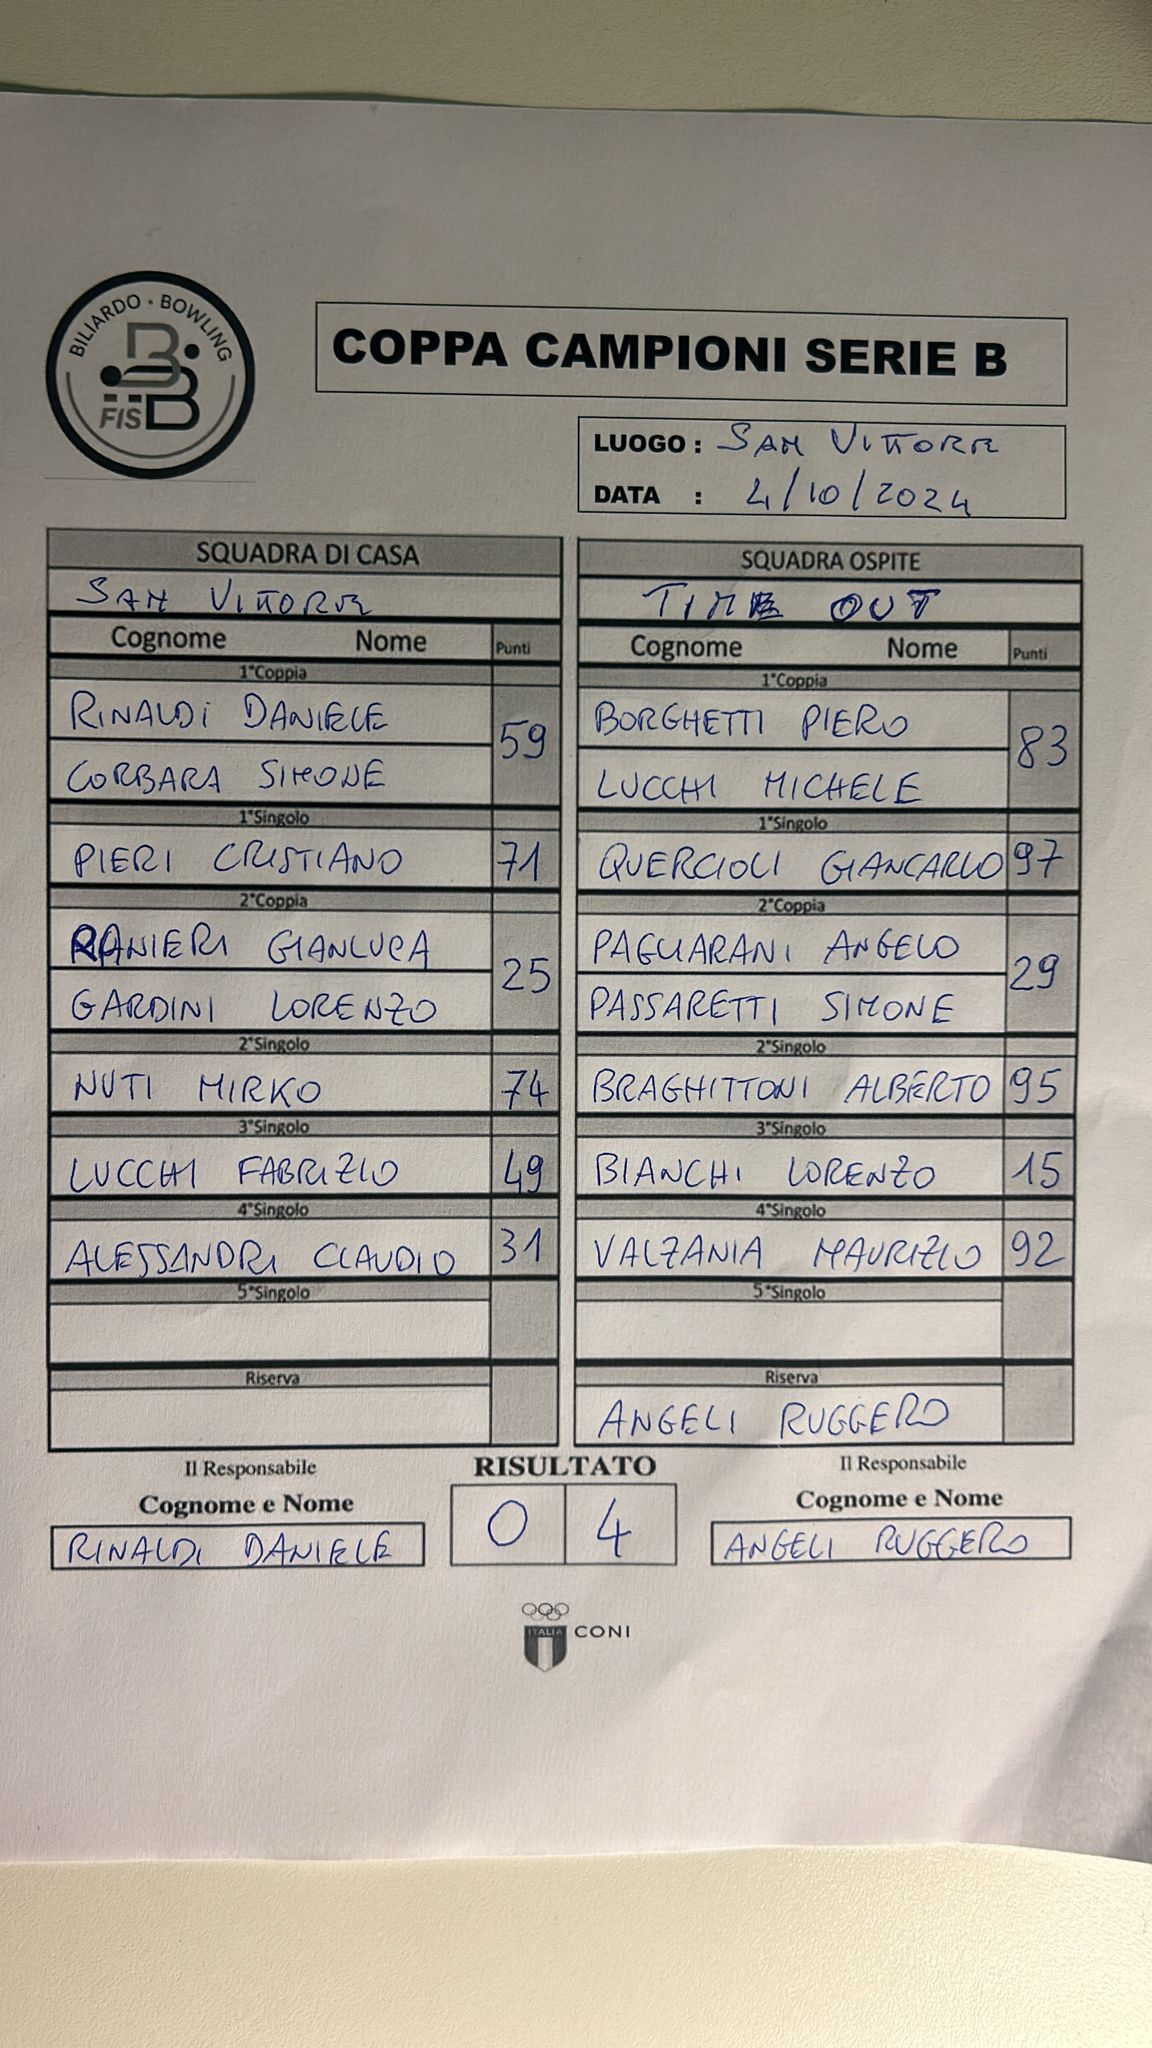 BILIARDO · BOWLING
FISBB
COPPA CAMPIONI SERIE B
LUOGO : SAN VITTORE
DATA : 4/10/2024
SQUADRA DI CASA
SAN VITTORE
Cognome Nome Punti
1°Coppia
RINALDI DANIELE
CORBARA SIMONE
59
1°Singolo
PIERI CRISTIANO 71
2°Coppia
RANIERI GIANLUCA
GARDINI LORENZO
25
2°Singolo
NUTI MIRKO 74
3°Singolo
LUCCHI FABRIZIO 49
4°Singolo
ALESSANDRI CLAUDIO 31
5°Singolo
Riserva
SQUADRA OSPITE
TIME OUT
Cognome Nome Punti
1°Coppia
BORGHETTI PIERO
LUCCHI MICHELE
83
1°Singolo
QUERCIOLI GIANCARLO 97
2°Coppia
PAGLIARANI ANGELO
PASSARETTI SIMONE
29
2°Singolo
BRAGHITTONI ALBERTO 95
3°Singolo
BIANCHI LORENZO 15
4°Singolo
VALZANIA MAURIZIO 92
5°Singolo
Riserva
ANGELI RUGGERO
Il Responsabile
Cognome e Nome
RINALDI DANIELE
RISULTATO
0 4
Il Responsabile
Cognome e Nome
ANGELI RUGGERO
ITALIA
CONI